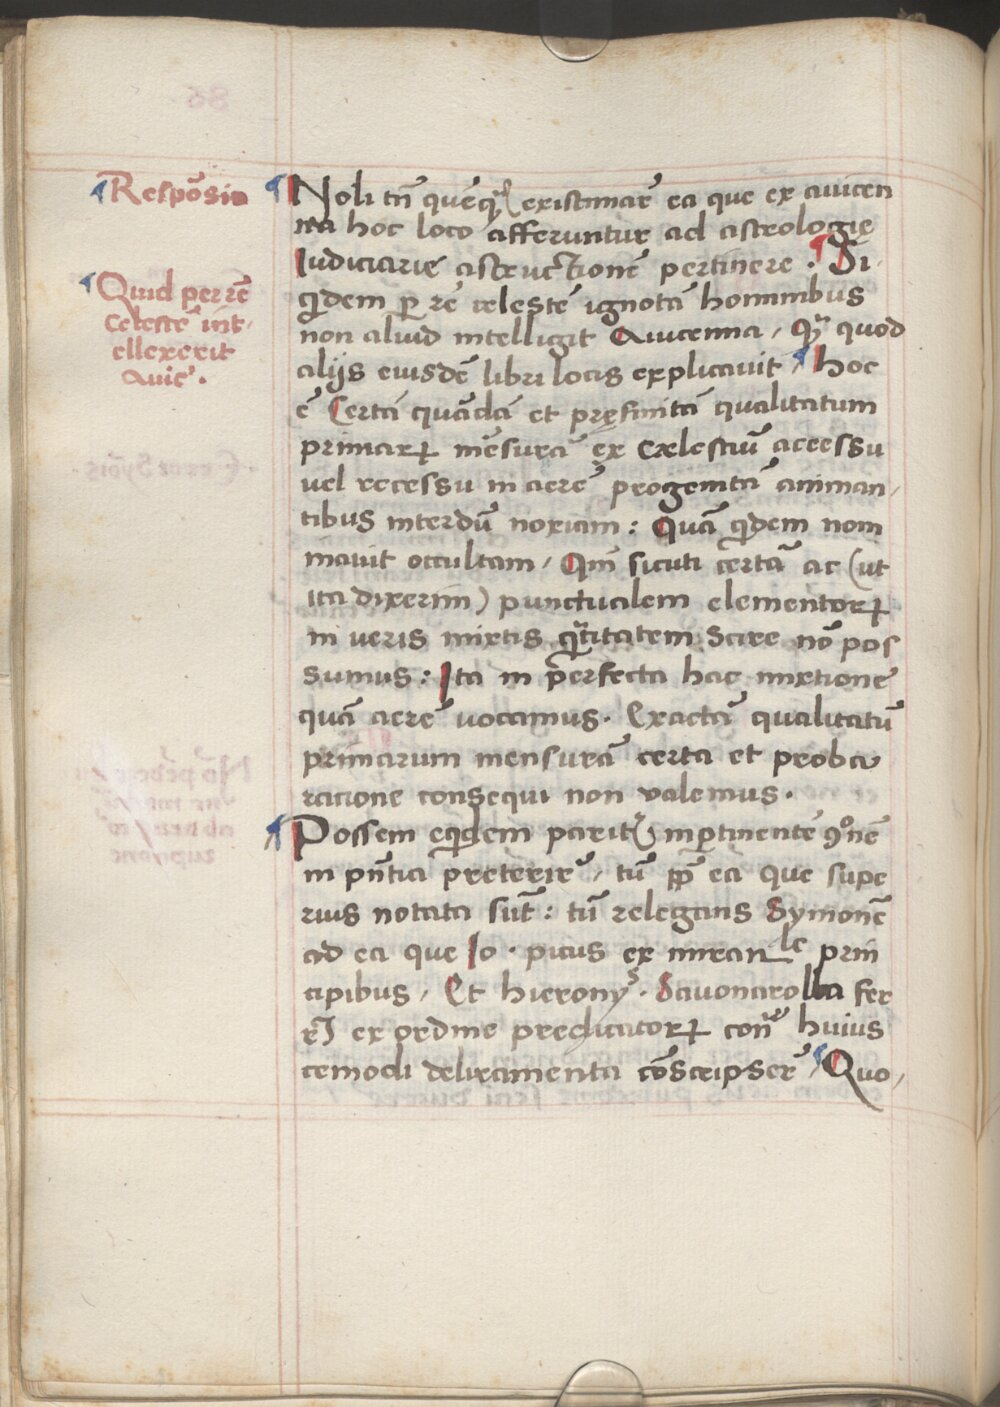 Respōsio
Quid per rē
Celestē int-
ellexerit
Auic̄.
Noli tn̄ quēq̄ existimarē ea que ex auicen
na hoc loco afferuntur ad astrologię
Iudiciarię astructionē pertinere. Si-
qdem p rē celestē ignotā hominibus
non aliud intelligit Auicenna, qꝫ quod
alijs eiusdē libri locis explicauit, hoc
ē Certā quādā et pręfinitā qualitatum
primarꝝ mēsurā ex cælestiū acessu
uel recessu in aerē progenitā animan,
tibus interdū noxiam: Quā qdem nom
inauit occultam, Qm̄ sicuti certā ac (ut
ita dixerim) punctualem elementorꝝ
in ueris mixtis q̄titatem scire nō pos
sumus: Ita in perfecta hac mixtionē
quā aerē uocamus. Exactā qualitatū
primarum mensurā certa et proba
racione consequi non valemus.
Possem eqdem parit̄ inp̱tinentē ꝯ̊nē
in pn̄tia preterirē, tū ꝓp̄ ea que supe
rius notata sūt: tū relegans Symonē
ad ea que Io. picus ex miranle prin
cipibus, Et hieronyꝰ. Sauonarolla fer
r̄ ex ordine predicatorꝝ conr̄ huius
cemodi deliramenta cōscripserē, Quo,